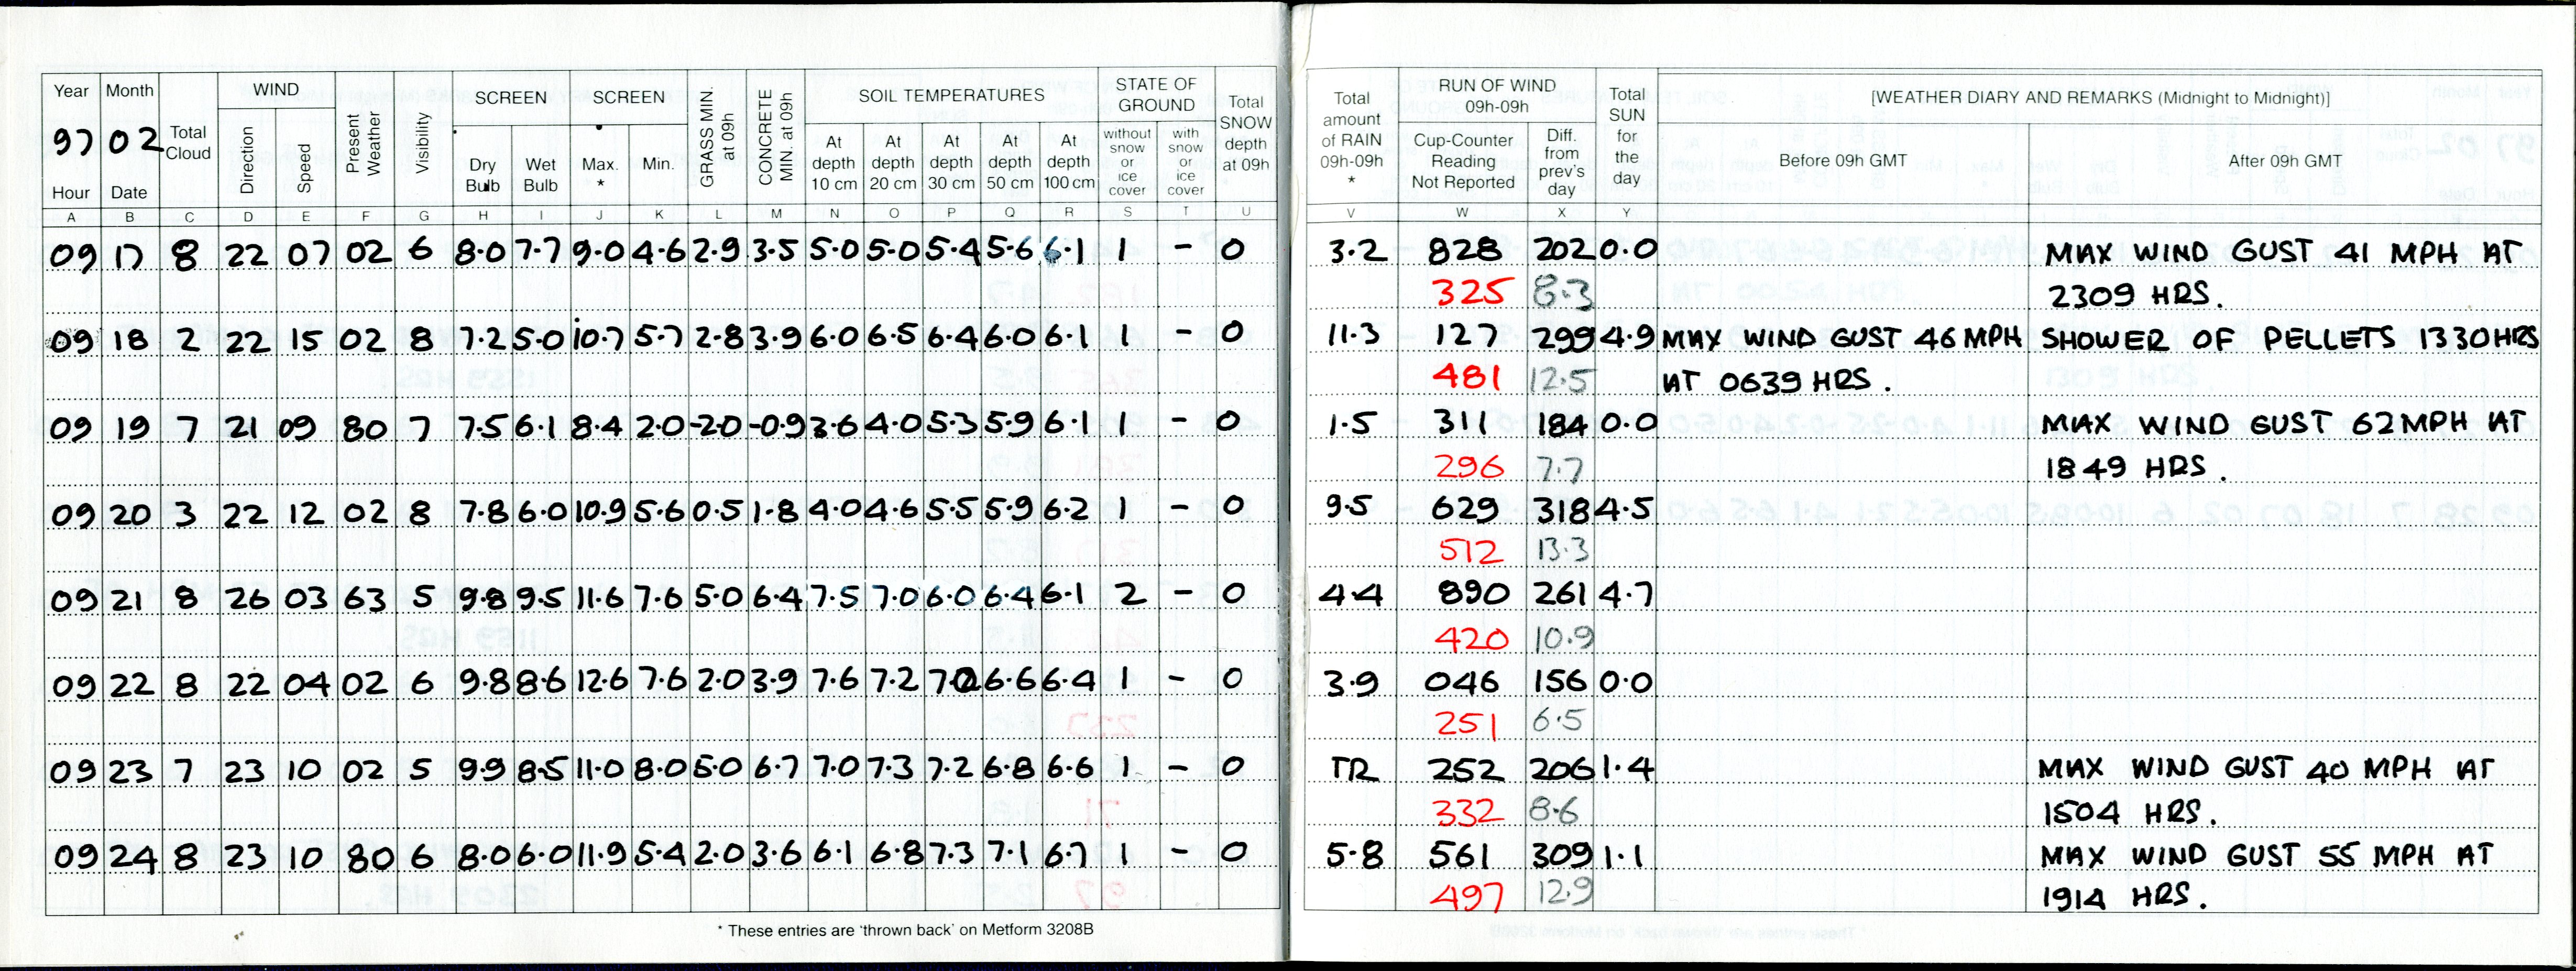 Year Month WIND SCREEN SCREEN GRASS MIN. at 09h CONCRETE MIN. at 09h SOIL TEMPERATURES STATE OF GROUND Total SNOW depth at 09h Total amount of RAIN 09h-09h * RUN OF WIND 09h-09h Total SUN for the day [WEATHER DIARY AND REMARKS (Midnight to Midnight)]
97 02 Total Cloud Direction Speed Present Weather Visibility Dry Bulb Wet Bulb Max. * Min. At depth 10 cm At depth 20 cm At depth 30 cm At depth 50 cm At depth 100 cm without snow or ice cover with snow or ice cover Cup-Counter Reading Not Reported Diff. from prev's day Before 09h GMT After 09h GMT
Hour Date
A B C D E F G H I J K L M N O P Q R S T U V W X Y
09 17 8 22 07 02 6 8.0 7.7 9.0 4.6 2.9 3.5 5.0 5.0 5.4 5.6 6.1 1 - 0 3.2 828 202 0.0 MAX WIND GUST 41 MPH AT
325 8.3 2309 HRS.
09 18 2 22 15 02 8 7.2 5.0 10.7 5.7 2.8 3.9 6.0 6.5 6.4 6.0 6.1 1 - 0 11.3 127 299 4.9 MAX WIND GUST 46 MPH SHOWER OF PELLETS 1330 HRS
481 12.5 AT 0639 HRS.
09 19 7 21 09 80 7 7.5 6.1 8.4 2.0 -2.0 -0.9 3.6 4.0 5.3 5.9 6.1 1 - 0 1.5 311 184 0.0 MAX WIND GUST 62 MPH AT
296 7.7 1849 HRS.
09 20 3 22 12 02 8 7.8 6.0 10.9 5.6 0.5 1.8 4.0 4.6 5.5 5.9 6.2 1 - 0 9.5 629 318 4.5
512 13.3
09 21 8 26 03 63 5 9.8 9.5 11.6 7.6 5.0 6.4 7.5 7.0 6.0 6.4 6.1 2 - 0 4.4 890 261 4.7
420 10.9
09 22 8 22 04 02 6 9.8 8.6 12.6 7.6 2.0 3.9 7.6 7.2 6.6 6.4 1 - 0 3.9 046 156 0.0
251 6.5
09 23 7 23 10 02 5 9.9 8.5 11.0 8.0 5.0 6.7 7.0 7.3 7.2 6.8 6.6 1 - 0 TR 252 206 1.4 MAX WIND GUST 40 MPH AT
332 8.6 1504 HRS.
09 24 8 23 10 80 6 8.0 6.0 11.9 5.4 2.0 3.6 6.1 6.8 7.3 7.1 6.7 1 - 0 5.8 561 309 1.1 MAX WIND GUST 55 MPH AT
497 12.9 1914 HRS.
* These entries are 'thrown back' on Metform 3208B